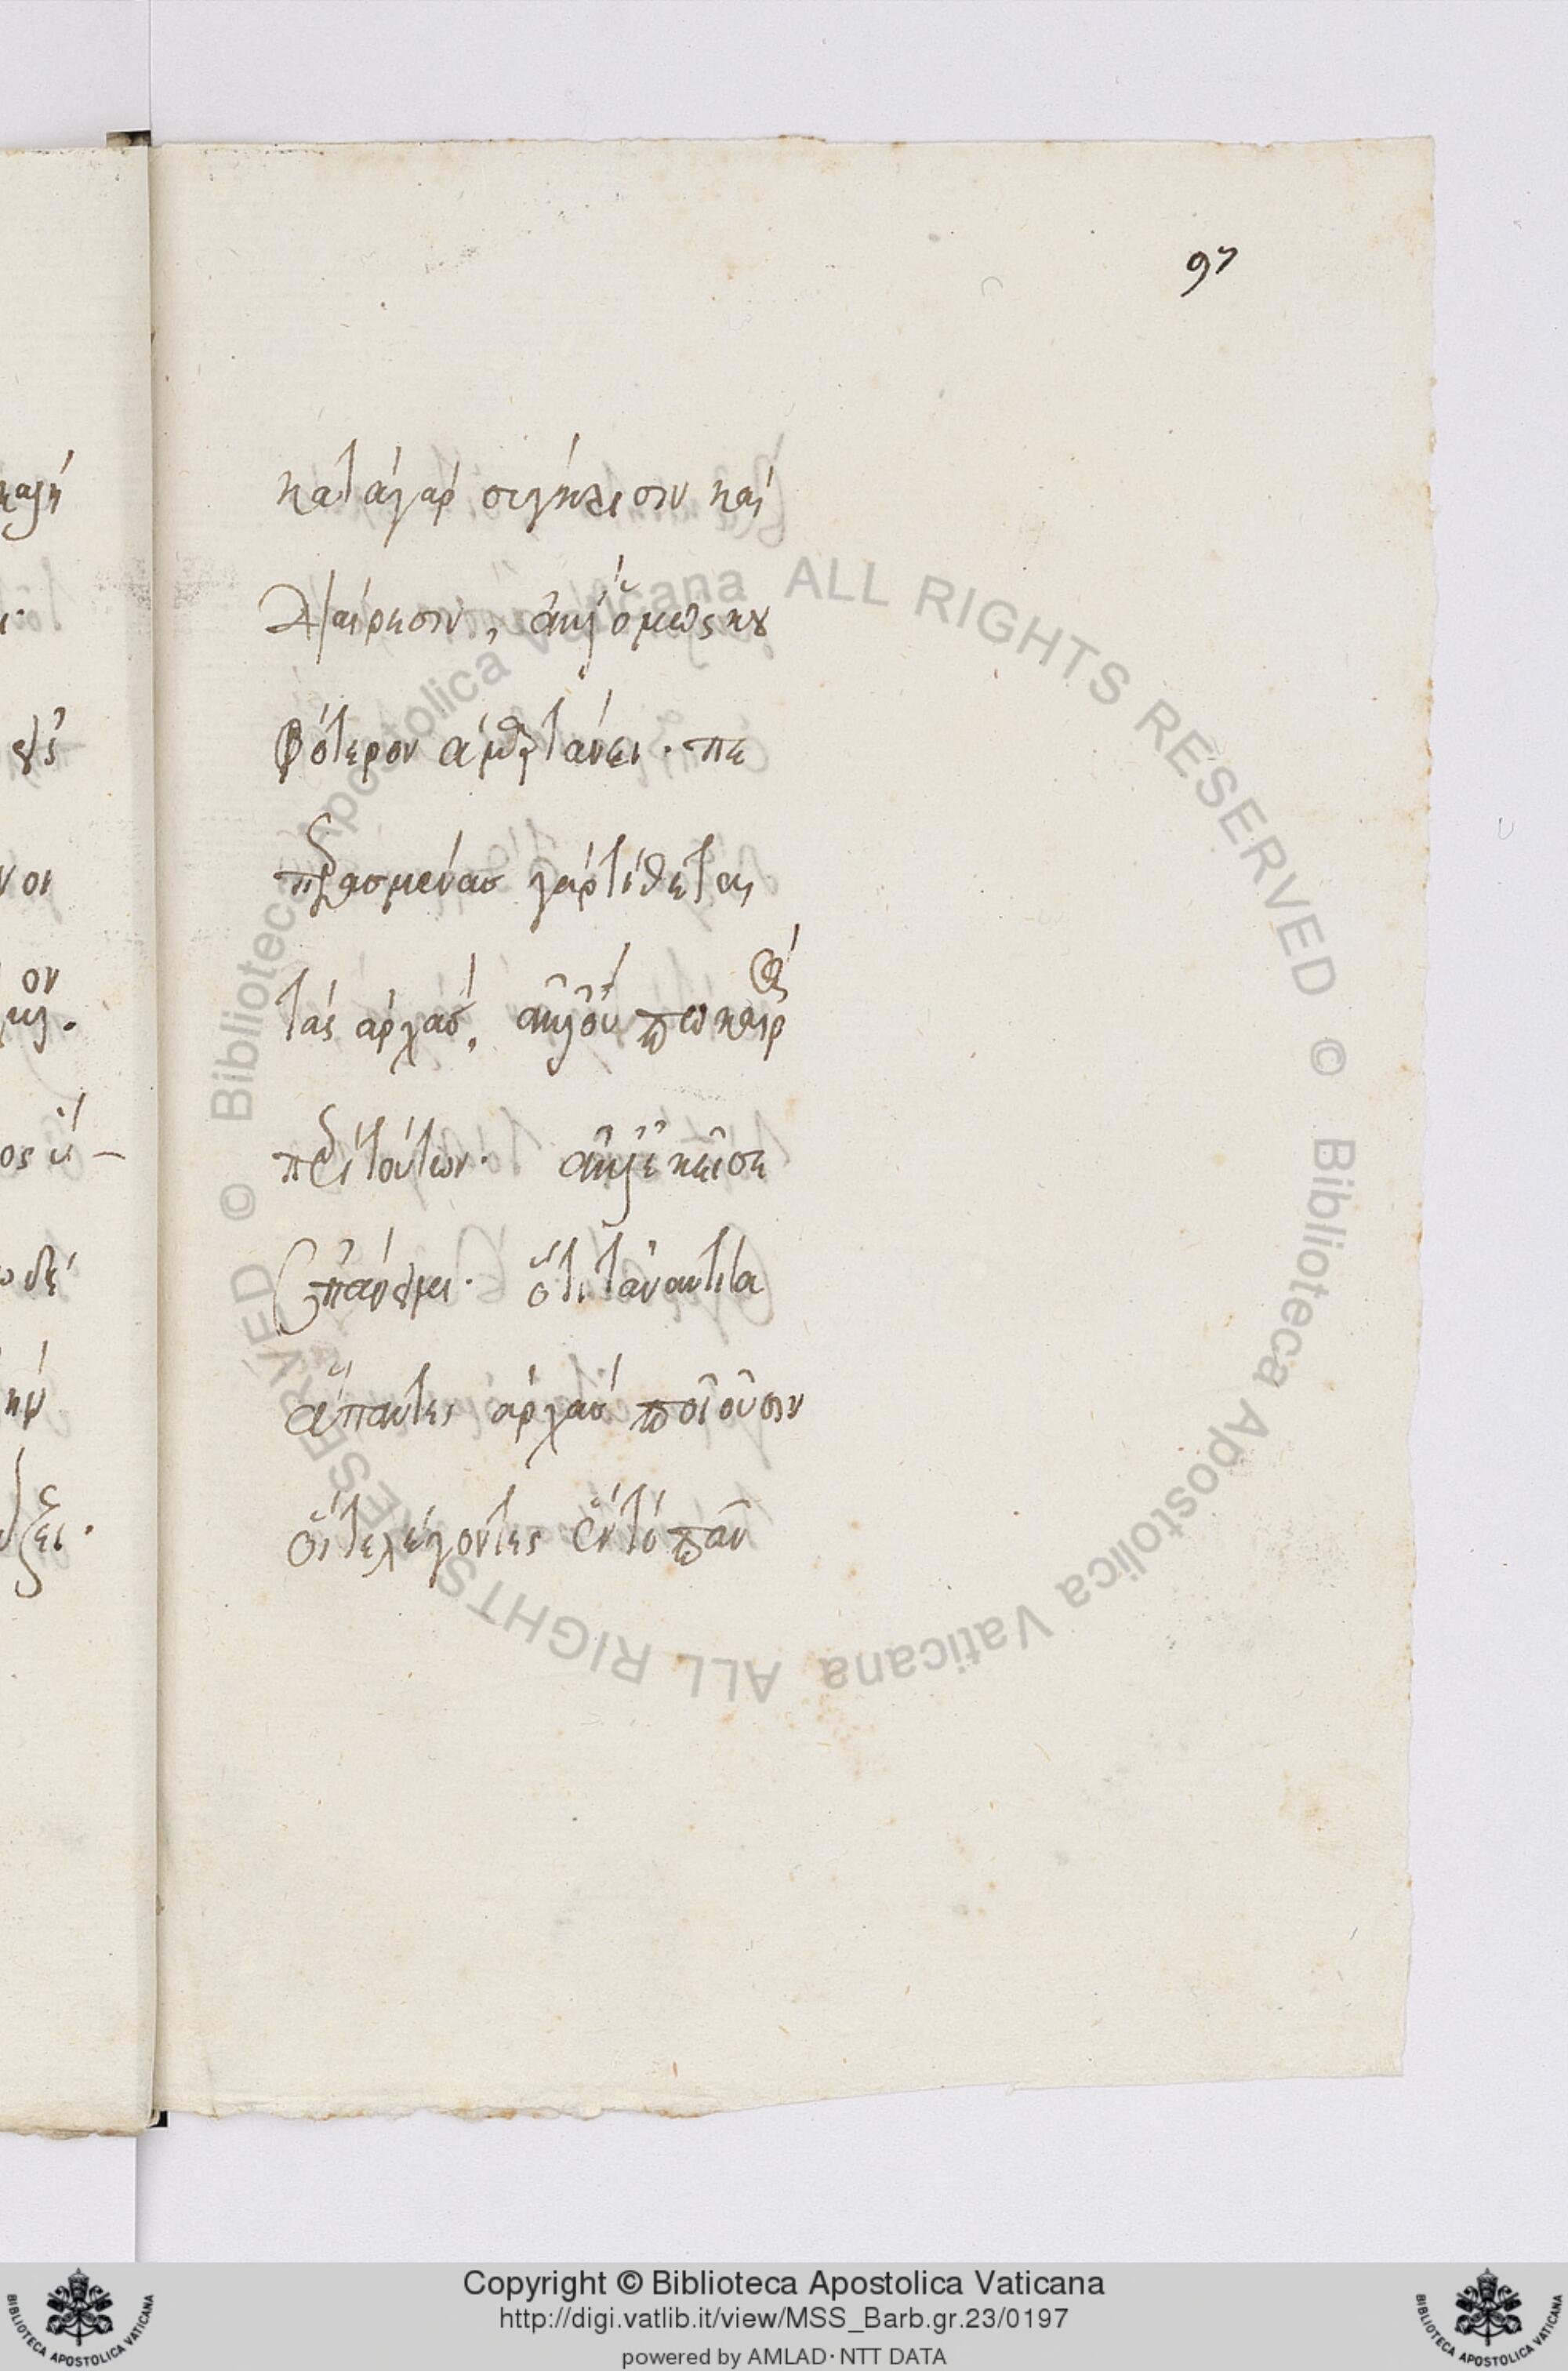 97
κατὰ γὰρ σύγκρισιν καὶ
διαίρεσιν, ἀλλ' ὅμως κου
φότερον ἁμαρτάνει. πε
περασμένας γὰρ τίθεται
τὰς ἀρχάς, ἀλλ' οὔπω καιρὸς
περὶ τούτων. ἀλλ' ἐκεῖσε
ἐπάνειμι. ὅτι τἀναντία
ἅπαντες ἀρχὰς ποιοῦσιν
οἵ τε λέγοντες ἓν τὸ πᾶν
© Biblioteca Apostolica Vaticana ALL RIGHTS RESERVED © Biblioteca Apostolica Vaticana ALL RIGHTS RESERVED
Copyright © Biblioteca Apostolica Vaticana
http://digi.vatlib.it/view/MSS_Barb.gr.23/0197
powered by AMLAD·NTT DATA
BIBLIOTECA APOSTOLICA VATICANA
BIBLIOTECA APOSTOLICA VATICANA